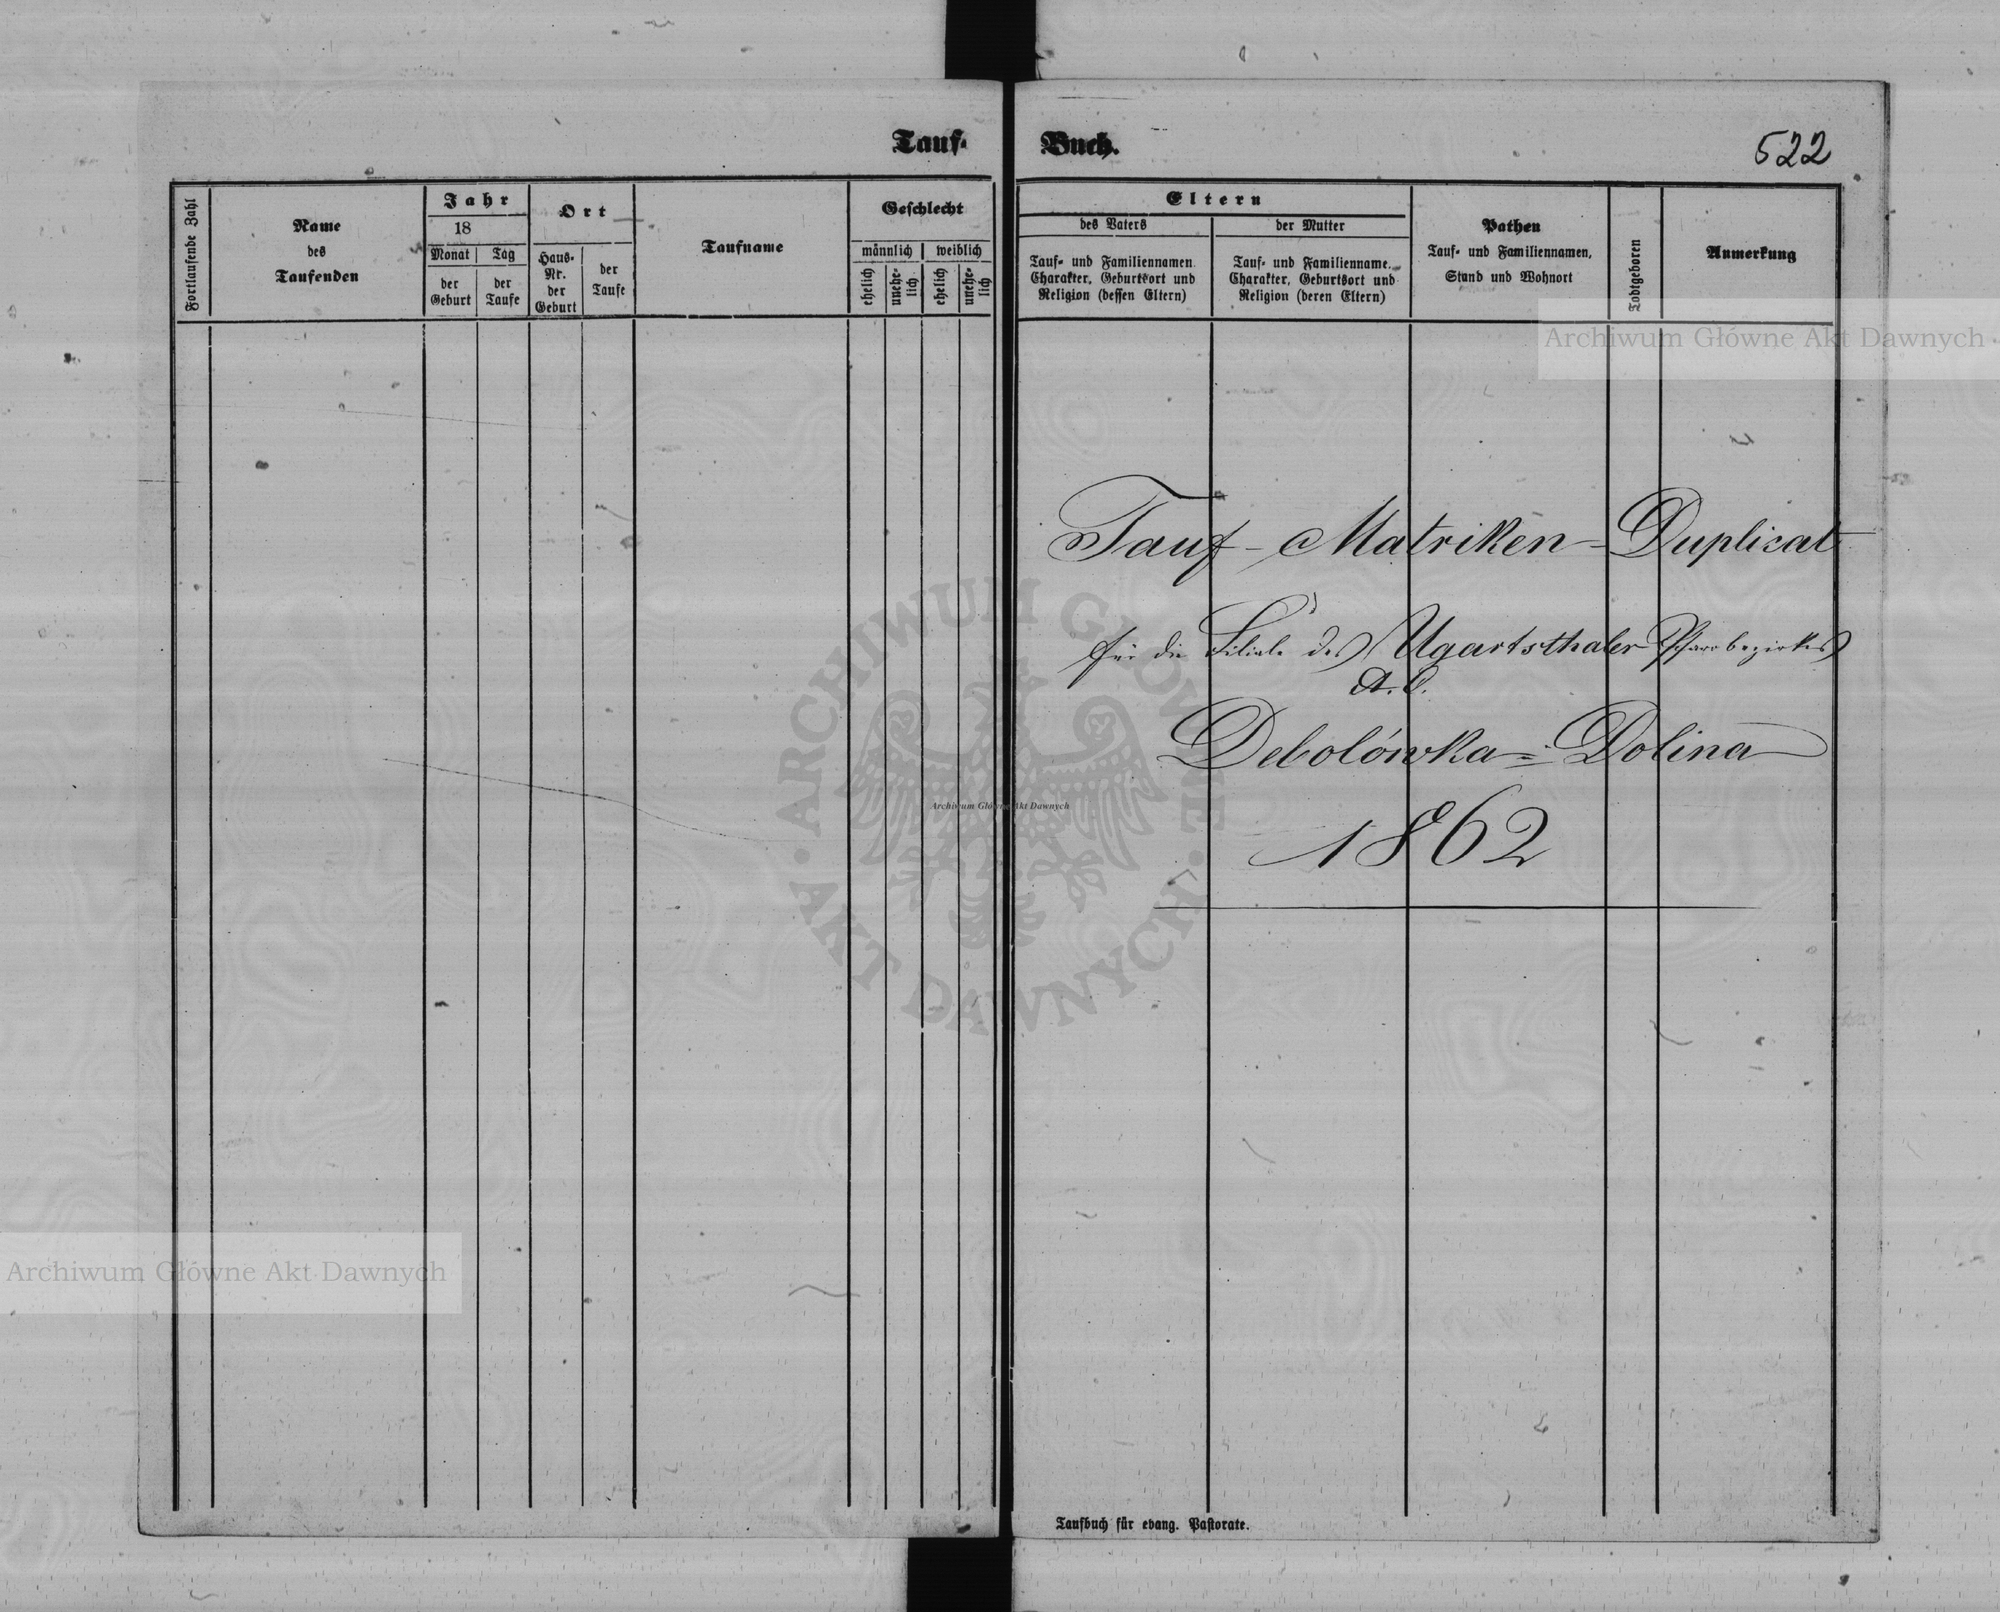 Tauf-
Fortlaufende Zahl
Name
des
Taufenden
Jahr
18
Monat
der
Geburt
Tag
der
Taufe
Ort
Haus-
Nr.
der
Geburt
der
Taufe
Taufname
Geschlecht
männlich
weiblich
ehelich
unehe-
lich
ehelich
unehe-
lich
Buch.
522
Eltern
des Vaters
Tauf- und Familiennamen
Charakter, Geburtsort und
Religion (dessen Eltern)
der Mutter
Tauf- und Familienname,
Charakter, Geburtsort und
Religion (deren Eltern)
Pathen
Tauf- und Familiennamen,
Stand und Wohnort
Todtgeboren
Anmerkung
Archiwum Główne Akt Dawnych
Tauf-Matriken-Duplicat
für die Filiale des Ugartsthaler Pfarrbezirkes
A. C.
Debolówka = Dolina
1862
ARCHIWUM GŁÓWNE
AKT DAWNYCH
Archiwum Główne Akt Dawnych
Archiwum Główne Akt Dawnych
Taufbuch für evang. Pastorate.